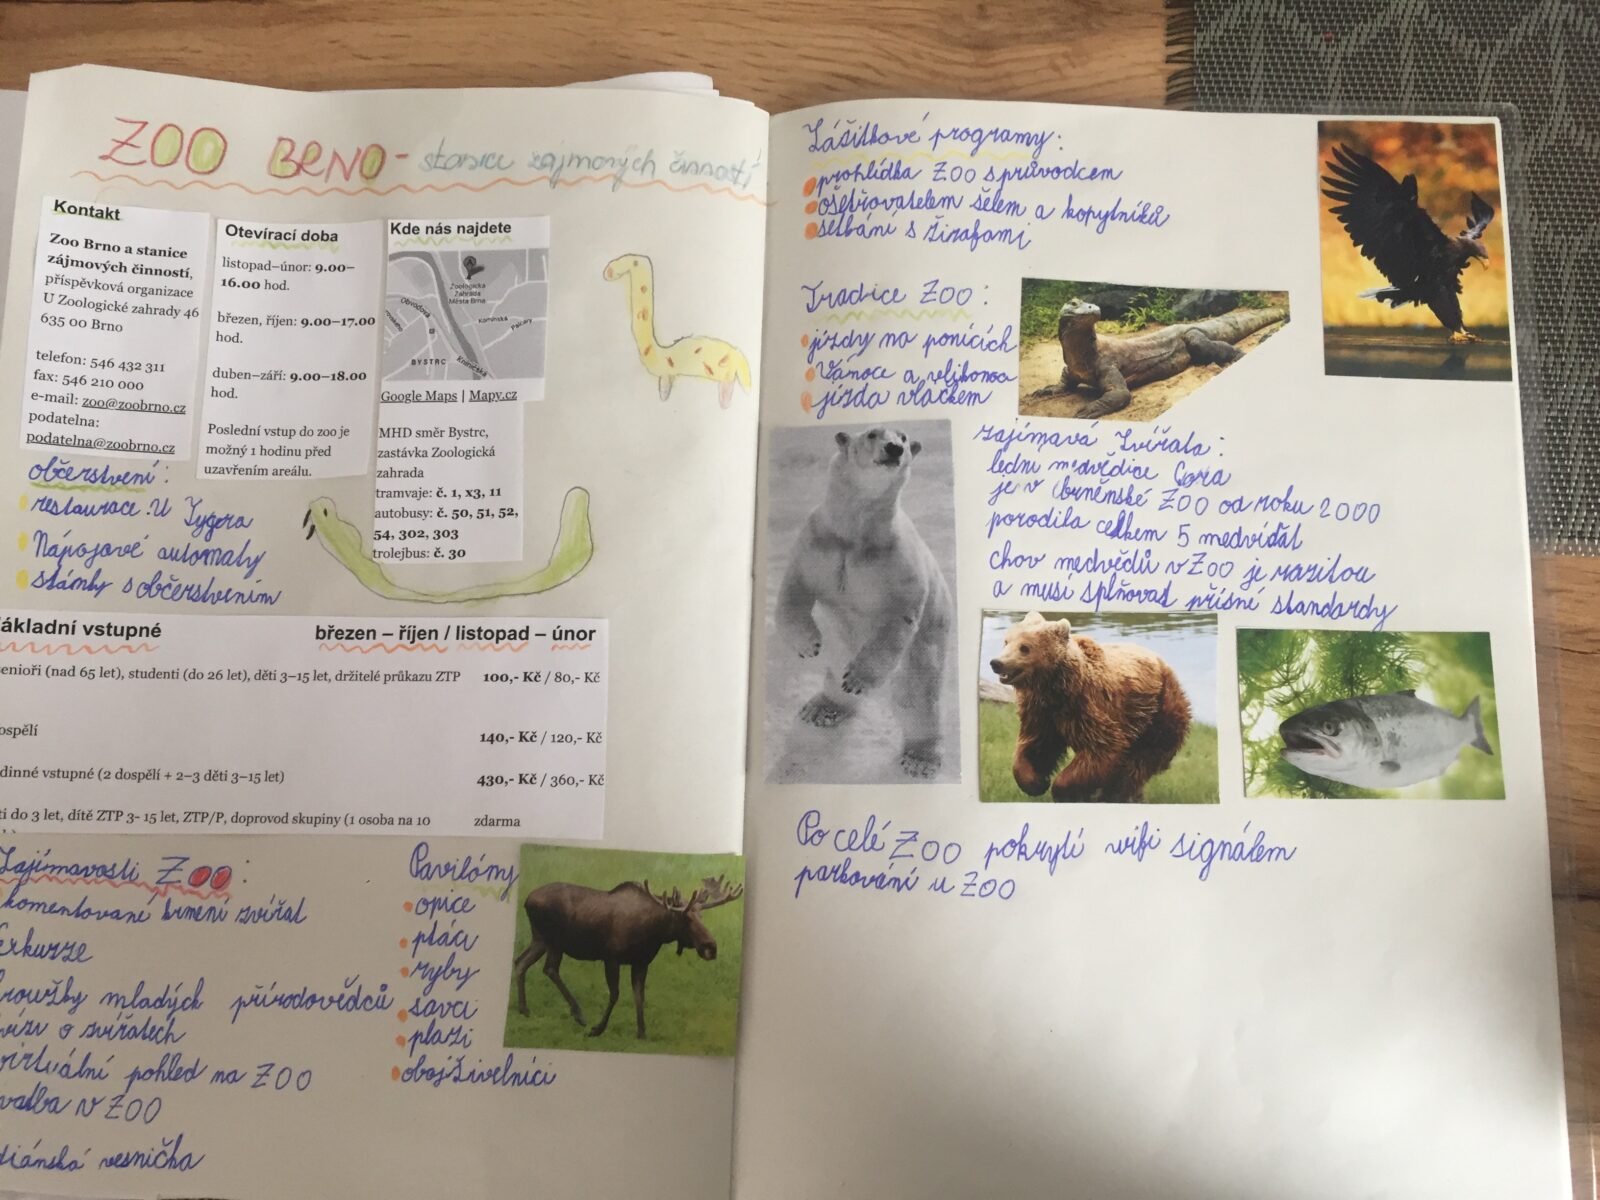 ZOO BRNO - stanice zájmových činností
Kontakt
Zoo Brno a stanice
zájmových činností,
příspěvková organizace
U Zoologické zahrady 46
635 00 Brno
telefon: 546 432 311
fax: 546 210 000
e-mail: zoo@zoobrno.cz
podatelna:
podatelna@zoobrno.cz
Otevírací doba
listopad–únor: 9.00–
16.00 hod.
březen, říjen: 9.00–17.00
hod.
duben–září: 9.00–18.00
hod.
Poslední vstup do zoo je
možný 1 hodinu před
uzavřením areálu.
Kde nás najdete
Zoologická
Zahrada
Města Brna
Obvodová
Kamínská
Palcary
BYSTRC
Kníničská
Google Maps | Mapy.cz
MHD směr Bystrc,
zastávka Zoologická
zahrada
tramvaje: č. 1, x3, 11
autobusy: č. 50, 51, 52,
54, 302, 303
trolejbus: č. 30
občerstvení:
restaurace U Tygra
Nápojové automaty
stánky s občerstvením
ákladní vstupné březen – říjen / listopad – únor
enioři (nad 65 let), studenti (do 26 let), děti 3–15 let, držitelé průkazu ZTP 100,- Kč / 80,- Kč
ospělí 140,- Kč / 120,- Kč
dinné vstupné (2 dospělí + 2–3 děti 3–15 let) 430,- Kč / 360,- Kč
ti do 3 let, dítě ZTP 3- 15 let, ZTP/P, doprovod skupiny (1 osoba na 10 zdarma
Zajímavosti ZOO:
komentované krmení zvířat
kroužky mladých přírodovědců
kvízy o zvířatech
virtuální pohled na ZOO
svatba v ZOO
diánská vesnička
Pavilóny
opice
ptáci
ryby
savci
plazi
obojživelníci
Zážitkové programy:
prohlídka ZOO s průvodcem
ošetřovatelem šelem a kopytníků
setkání s žirafami
Tradice ZOO:
jízdy na ponících
Vánoce a velikonoce
jízda vláčkem
zajímavá zvířata:
lední medvědice Cora
je v brněnské ZOO od roku 2000
porodila celkem 5 medvíďat
chov medvědů v ZOO je raritou
a musí splňovat přísné standardy
Po celé ZOO pokrytí wifi signálem
parkování u ZOO